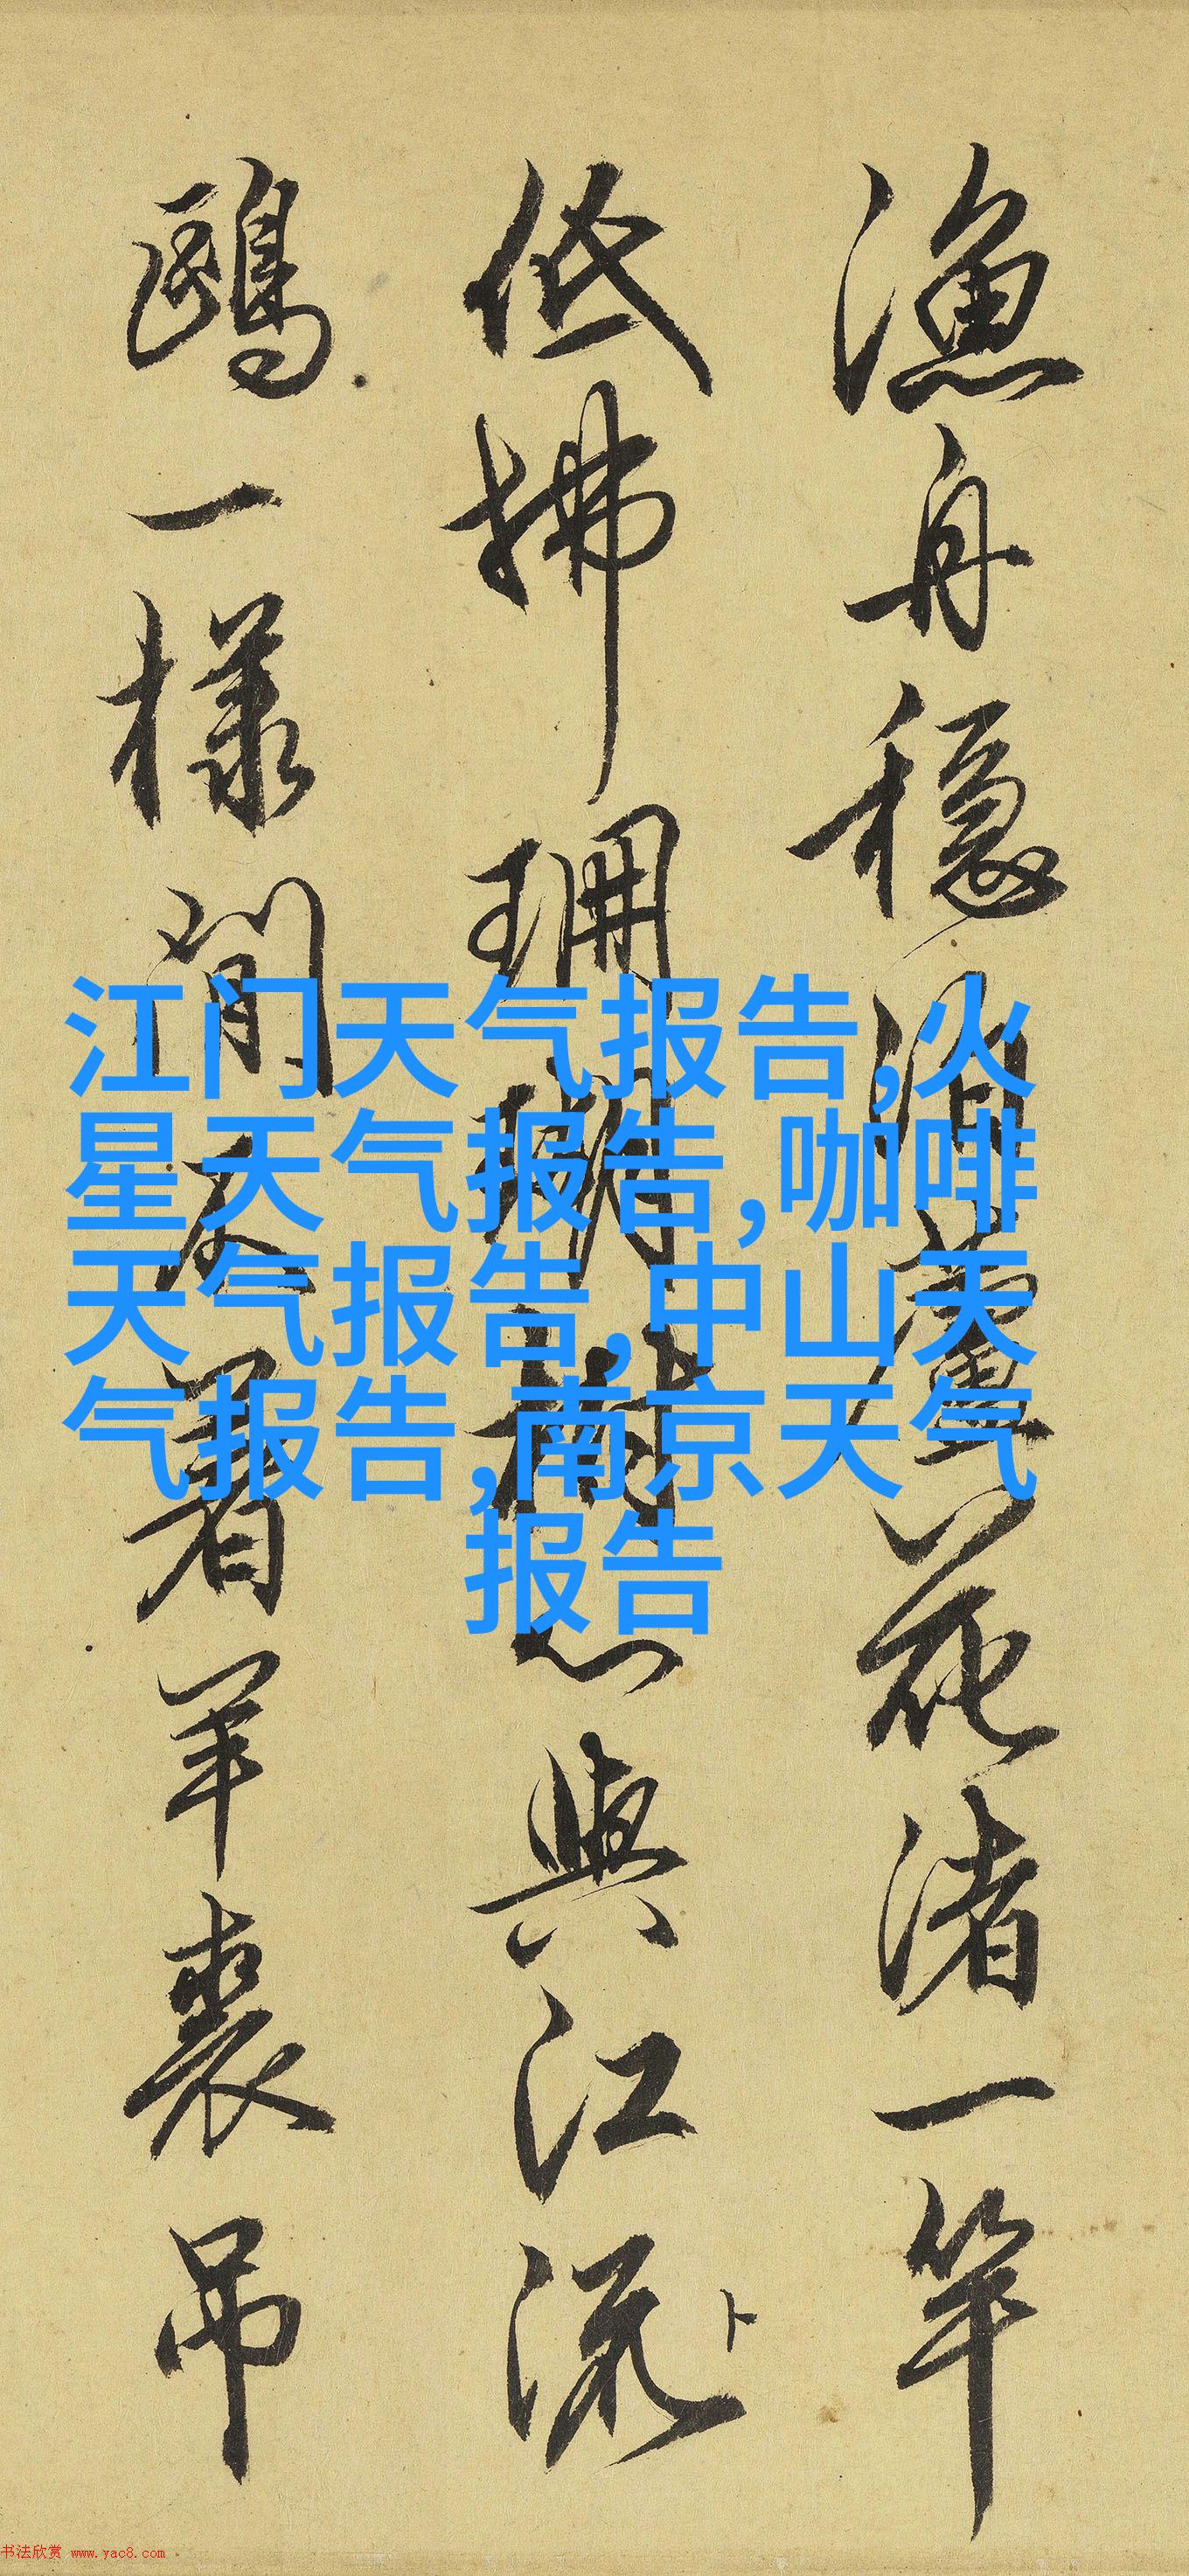 漁舟穩泊蘆花渚一竿
低拂珊瑚樹心與江流卜
鷗一樣閒著羊裘吊
江门天气报告,火
星天气报告,咖啡
天气报告,中山天
气报告,南京天气
报告
书法欣赏 www.yac8.com